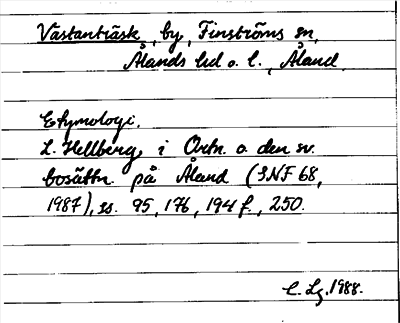 Västanträsk, by, Finströms sn,
Ålands hd o. l., Åland.
Etymologi.
L. Hellberg i Ortn. o. den sv.
bosättn. på Åland (SNF 68,
1987), ss. 95, 176, 194 f., 250.
C. Lg. 1988.